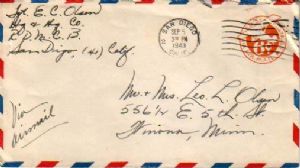 Sgt. E. C. Olson
Hq & Hq Co.
San Diego, (41) Calif.
SAN DIEGO
SEP
PM
1943
CALIF.
Mr. & Mrs. Leo L. Olson
556½ E. 5th St.
Winona, Minn.
Via
airmail